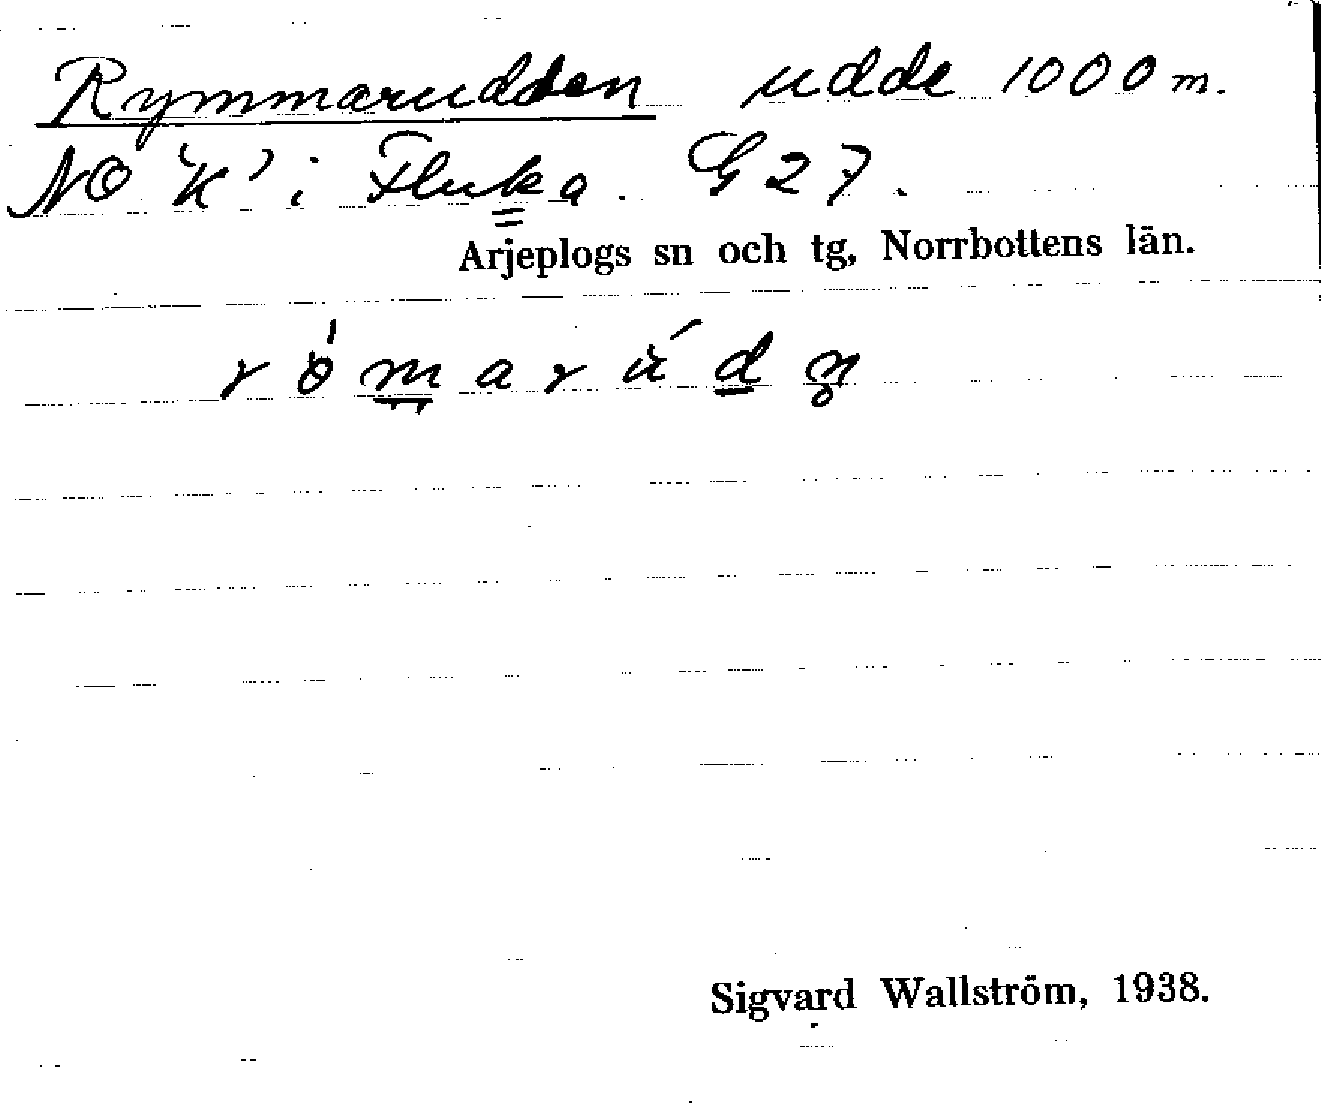 Rymmarudden udde 1000 m.
NO "K" i Fluka. G 27.
Arjeplogs sn och tg, Norrbottens län.
rö́marúdn̥
Sigvard Wallström, 1938.